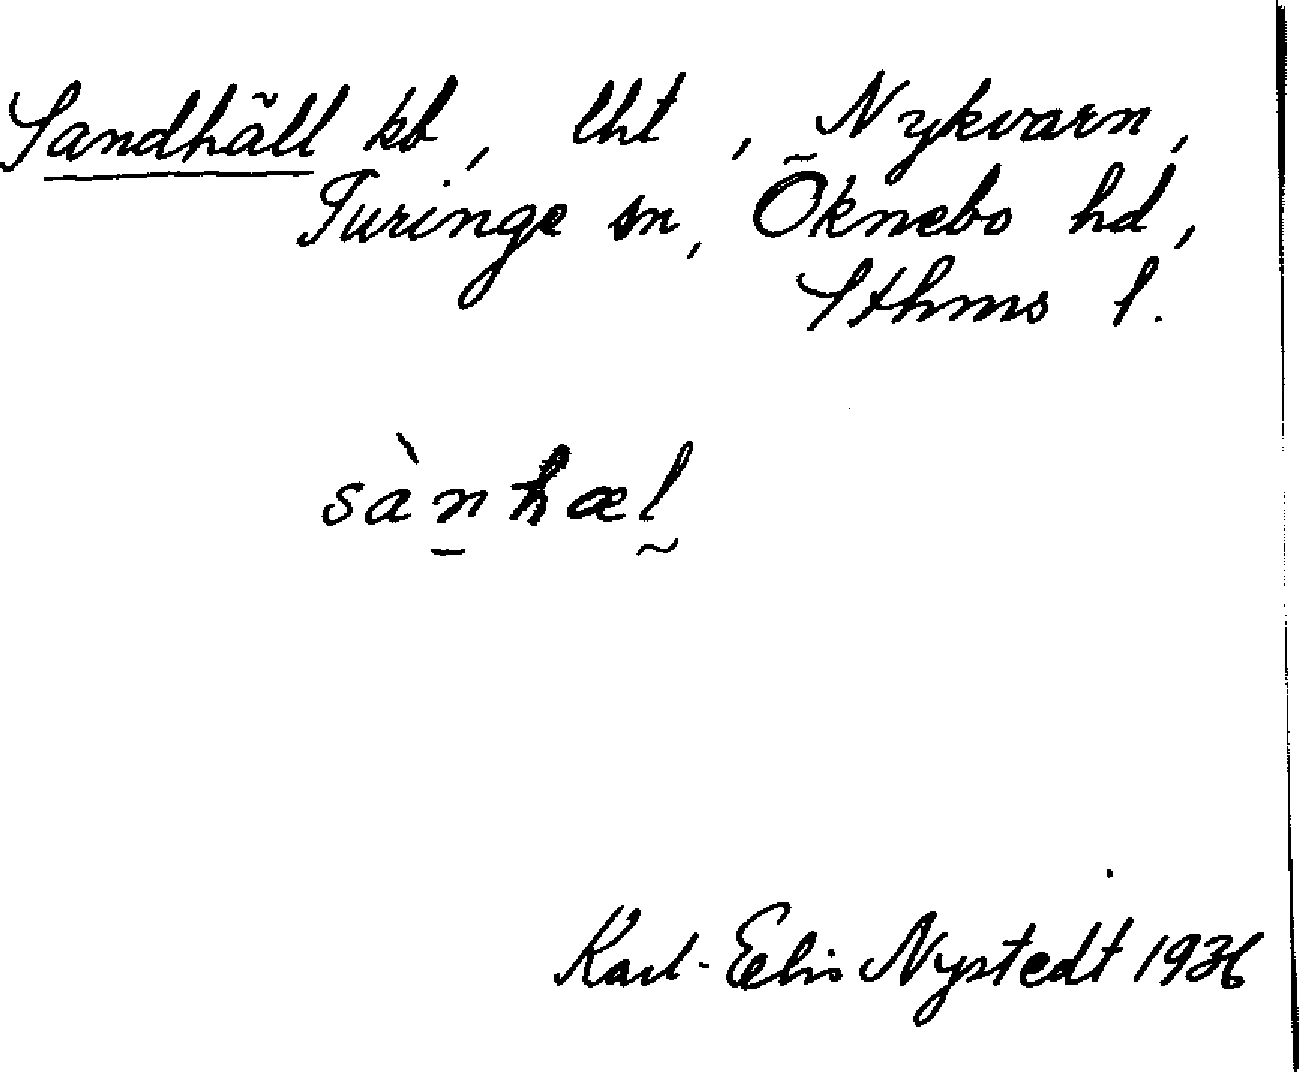 Sandhäll kb, lht, Nykvarn,
Turinge sn, Öknebo hd,
Sthms l.
sànhæl
Karl-Elis Nystedt 1936